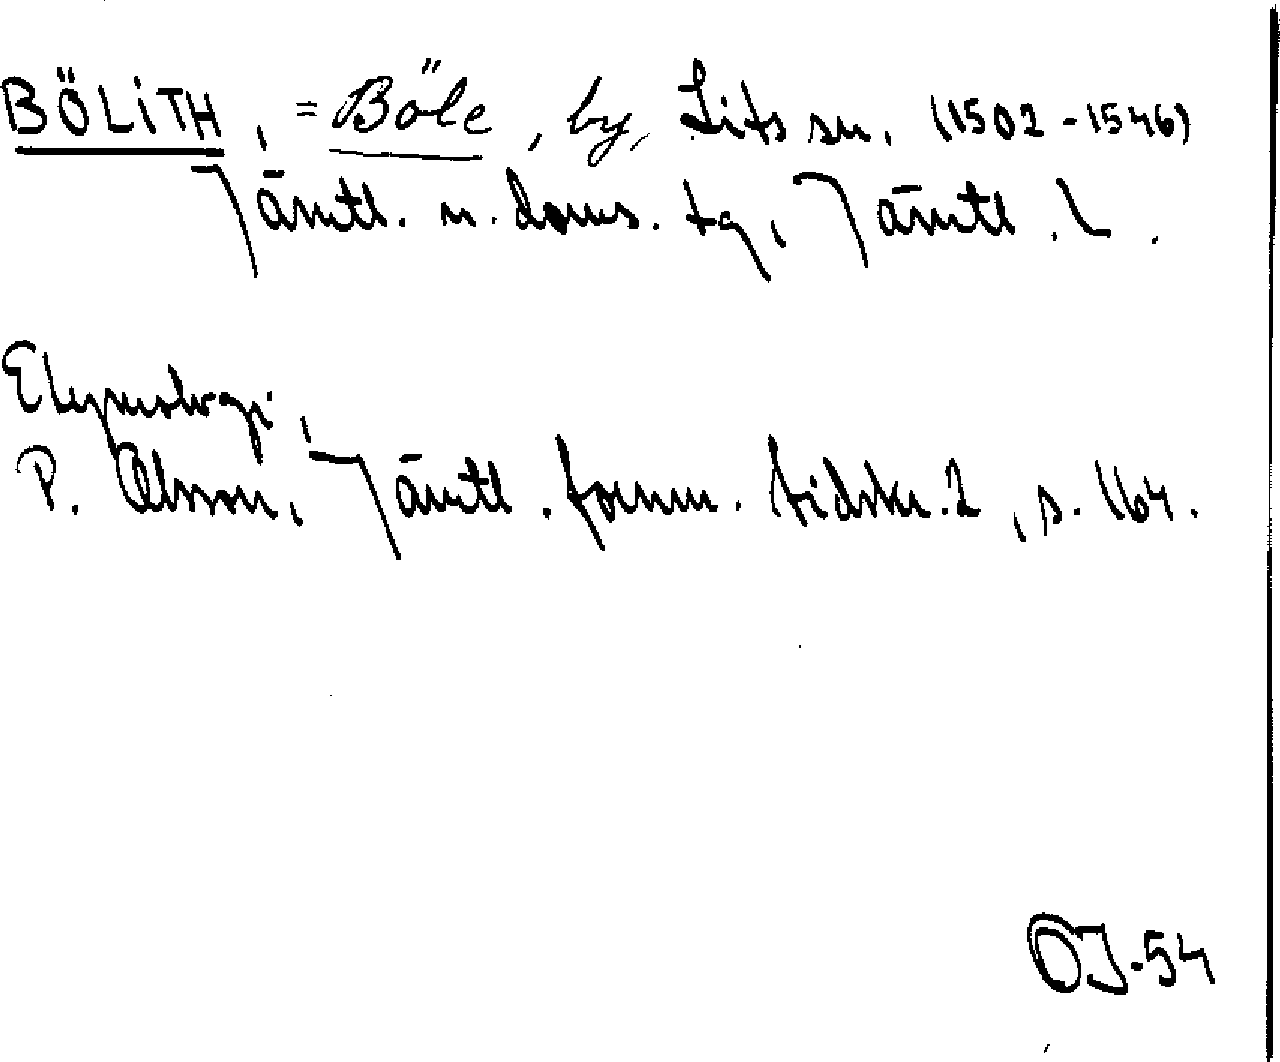 BÖLITH, = Böle, by, Lits sn. (1502-1546)
Jämtl. n. doms. tg, Jämtl. L.
Etymologi,
P. Olsson, Jämtl. fornm. tidskr. 2, s. 164.
OJ-54